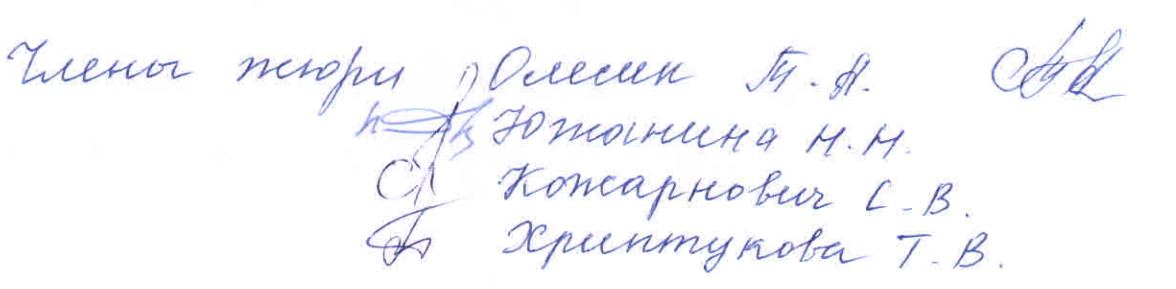 Члены жюри Олесик Т.А.
Южанина Н.Н.
Кожарнович С.В.
Хриптукова Т.В.